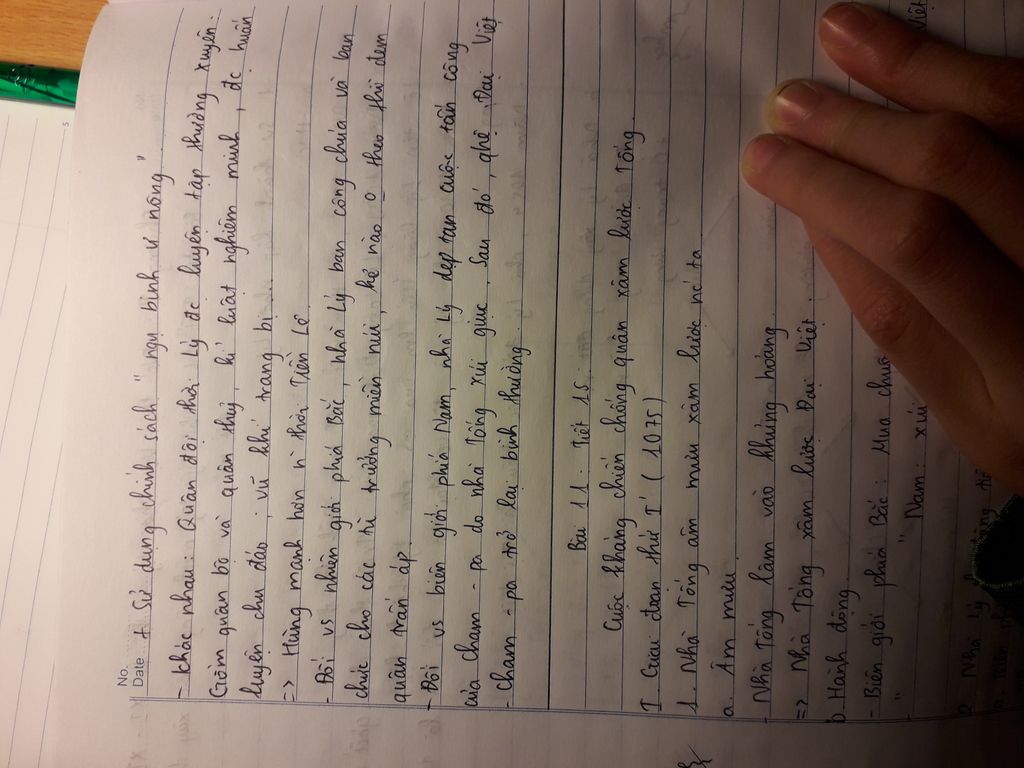 No.
Date
+ Sử dụng chính sách "ngụ binh ư nông"
- Khác nhau: Quân đội thời Lý đc luyện tập thường xuyên.
Gồm quân bộ và quân thuỷ, kỉ luật nghiêm minh, đc huấn
luyện chu đáo; vũ khí trang bị
=> Hùng mạnh hơn n thời Tiền Lê.
- Đối vs nhiên giới phía Bắc, nhà Lý ban công chúa và ban
chức cho các tù trưởng miền núi, kẻ nào o theo thì đem
quân trấn áp.
- Đối vs biên giới phía Nam, nhà Lý dẹp tan cuộc tấn công
của Cham-pa do nhà Tống xúi giục. Sau đó, ghệ Đại Việt
- Cham-pa trở lại bình thường.
Bài 11: Tiết 15:
Cuộc kháng chiến chống quân xâm lược Tống.
I. Giai đoạn thứ I (1075)
1. Nhà Tống âm mưu xâm lược nc ta
a. Âm mưu.
- Nhà Tống lâm vào khủng hoảng.
=> Nhà Tống xâm lược Đại Việt.
b. Hành động.
- Biên giới phía Bắc: Mua chuộ
" " Nam: xúi
Việt
2. Nhà Lý